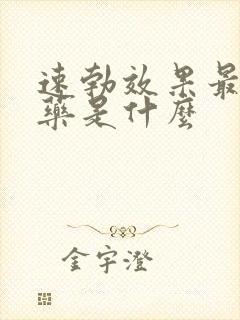 速勃效果最
藥是什麼
金宇澄